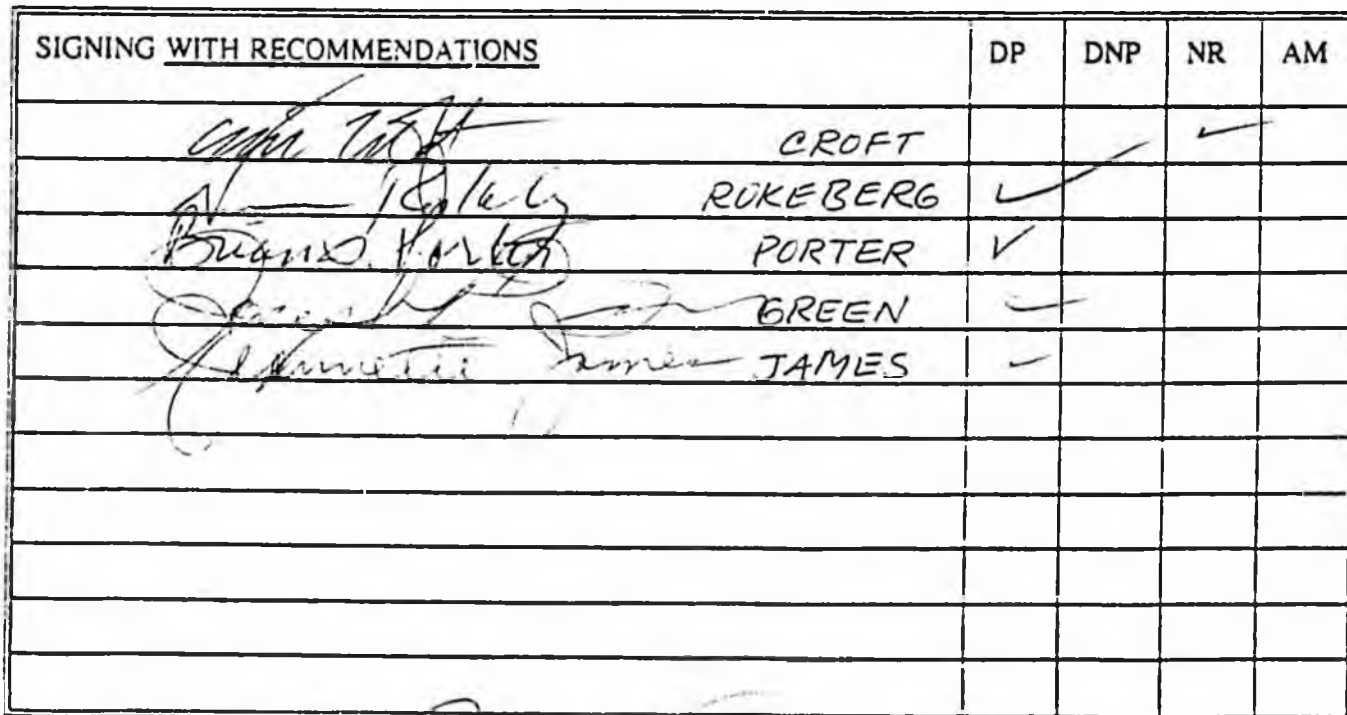 SIGNING WITH RECOMMENDATIONS DP DNP NR AM
CROFT ✓
ROKEBERG ✓
Brian S. Porter PORTER ✓
GREEN ✓
Jeannette James JAMES ✓